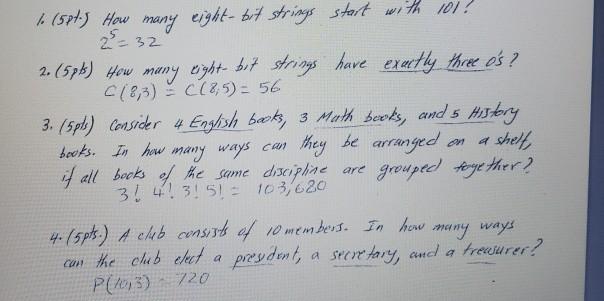 1. (5pt.) How many eight-bit strings start with 101?
2⁵ = 32
2. (5pts) How many eight-bit strings have exactly three 0's?
C(8,3) = C(8,5) = 56
3. (5pts) Consider 4 English books, 3 Math books, and 5 History
books. In how many ways can they be arranged on a shelf,
if all books of the same discipline are grouped together?
3! 4! 3! 5! = 103,620
4. (5pts.) A club consists of 10 members. In how many ways
can the club elect a president, a secretary, and a treasurer?
P(10,3) = 720